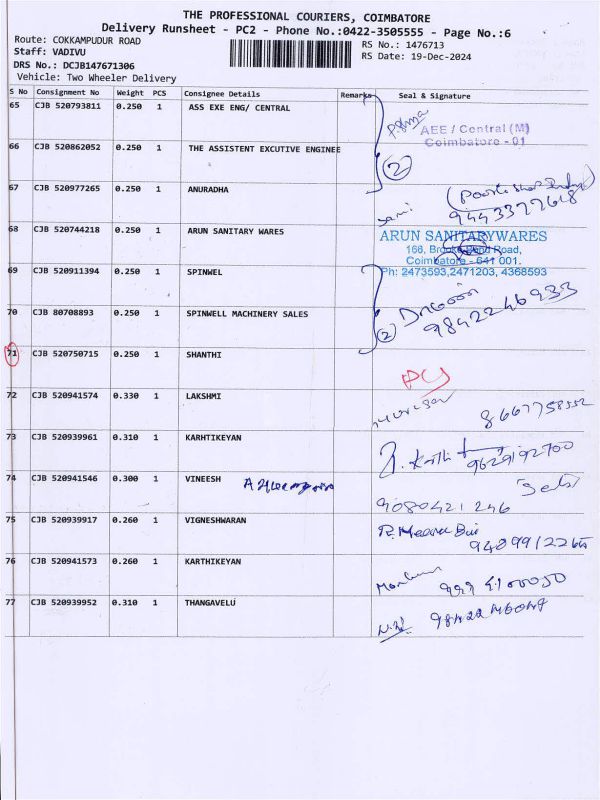 THE PROFESSIONAL COURIERS, COIMBATORE
Delivery Runsheet - PC2 - Phone No.:0422-3505555 - Page No.:6
Route: COKKAMPUDUR ROAD RS No.: 1476713
Staff: VADIVU RS Date: 19-Dec-2024
DRS No.: DCJB147671306
Vehicle: Two Wheeler Delivery
S No Consignment No Weight PCS Consignee Details Remarks Seal & Signature
65 CJB 520793811 0.250 1 ASS EXE ENG/ CENTRAL
AEE / Central (M)
Coimbatore - 01
66 CJB 520862052 0.250 1 THE ASSISTENT EXCUTIVE ENGINEE
2
67 CJB 520977265 0.250 1 ANURADHA
9443377618
68 CJB 520744218 0.250 1 ARUN SANITARY WARES
ARUN SANITARYWARES
166, Brooke Bond Road,
Coimbatore - 641 001.
Ph: 2473593,2471203, 4368593
69 CJB 520911394 0.250 1 SPINWEL
70 CJB 80708893 0.250 1 SPINWELL MACHINERY SALES
2 9842246933
71 CJB 520750715 0.250 1 SHANTHI
72 CJB 520941574 0.330 1 LAKSHMI
8667758552
73 CJB 520939961 0.310 1 KARHTIKEYAN
9629192700
74 CJB 520941546 0.300 1 VINEESH
9080421246
75 CJB 520939917 0.260 1 VIGNESHWARAN
76 CJB 520941573 0.260 1 KARTHIKEYAN
77 CJB 520939952 0.310 1 THANGAVELU